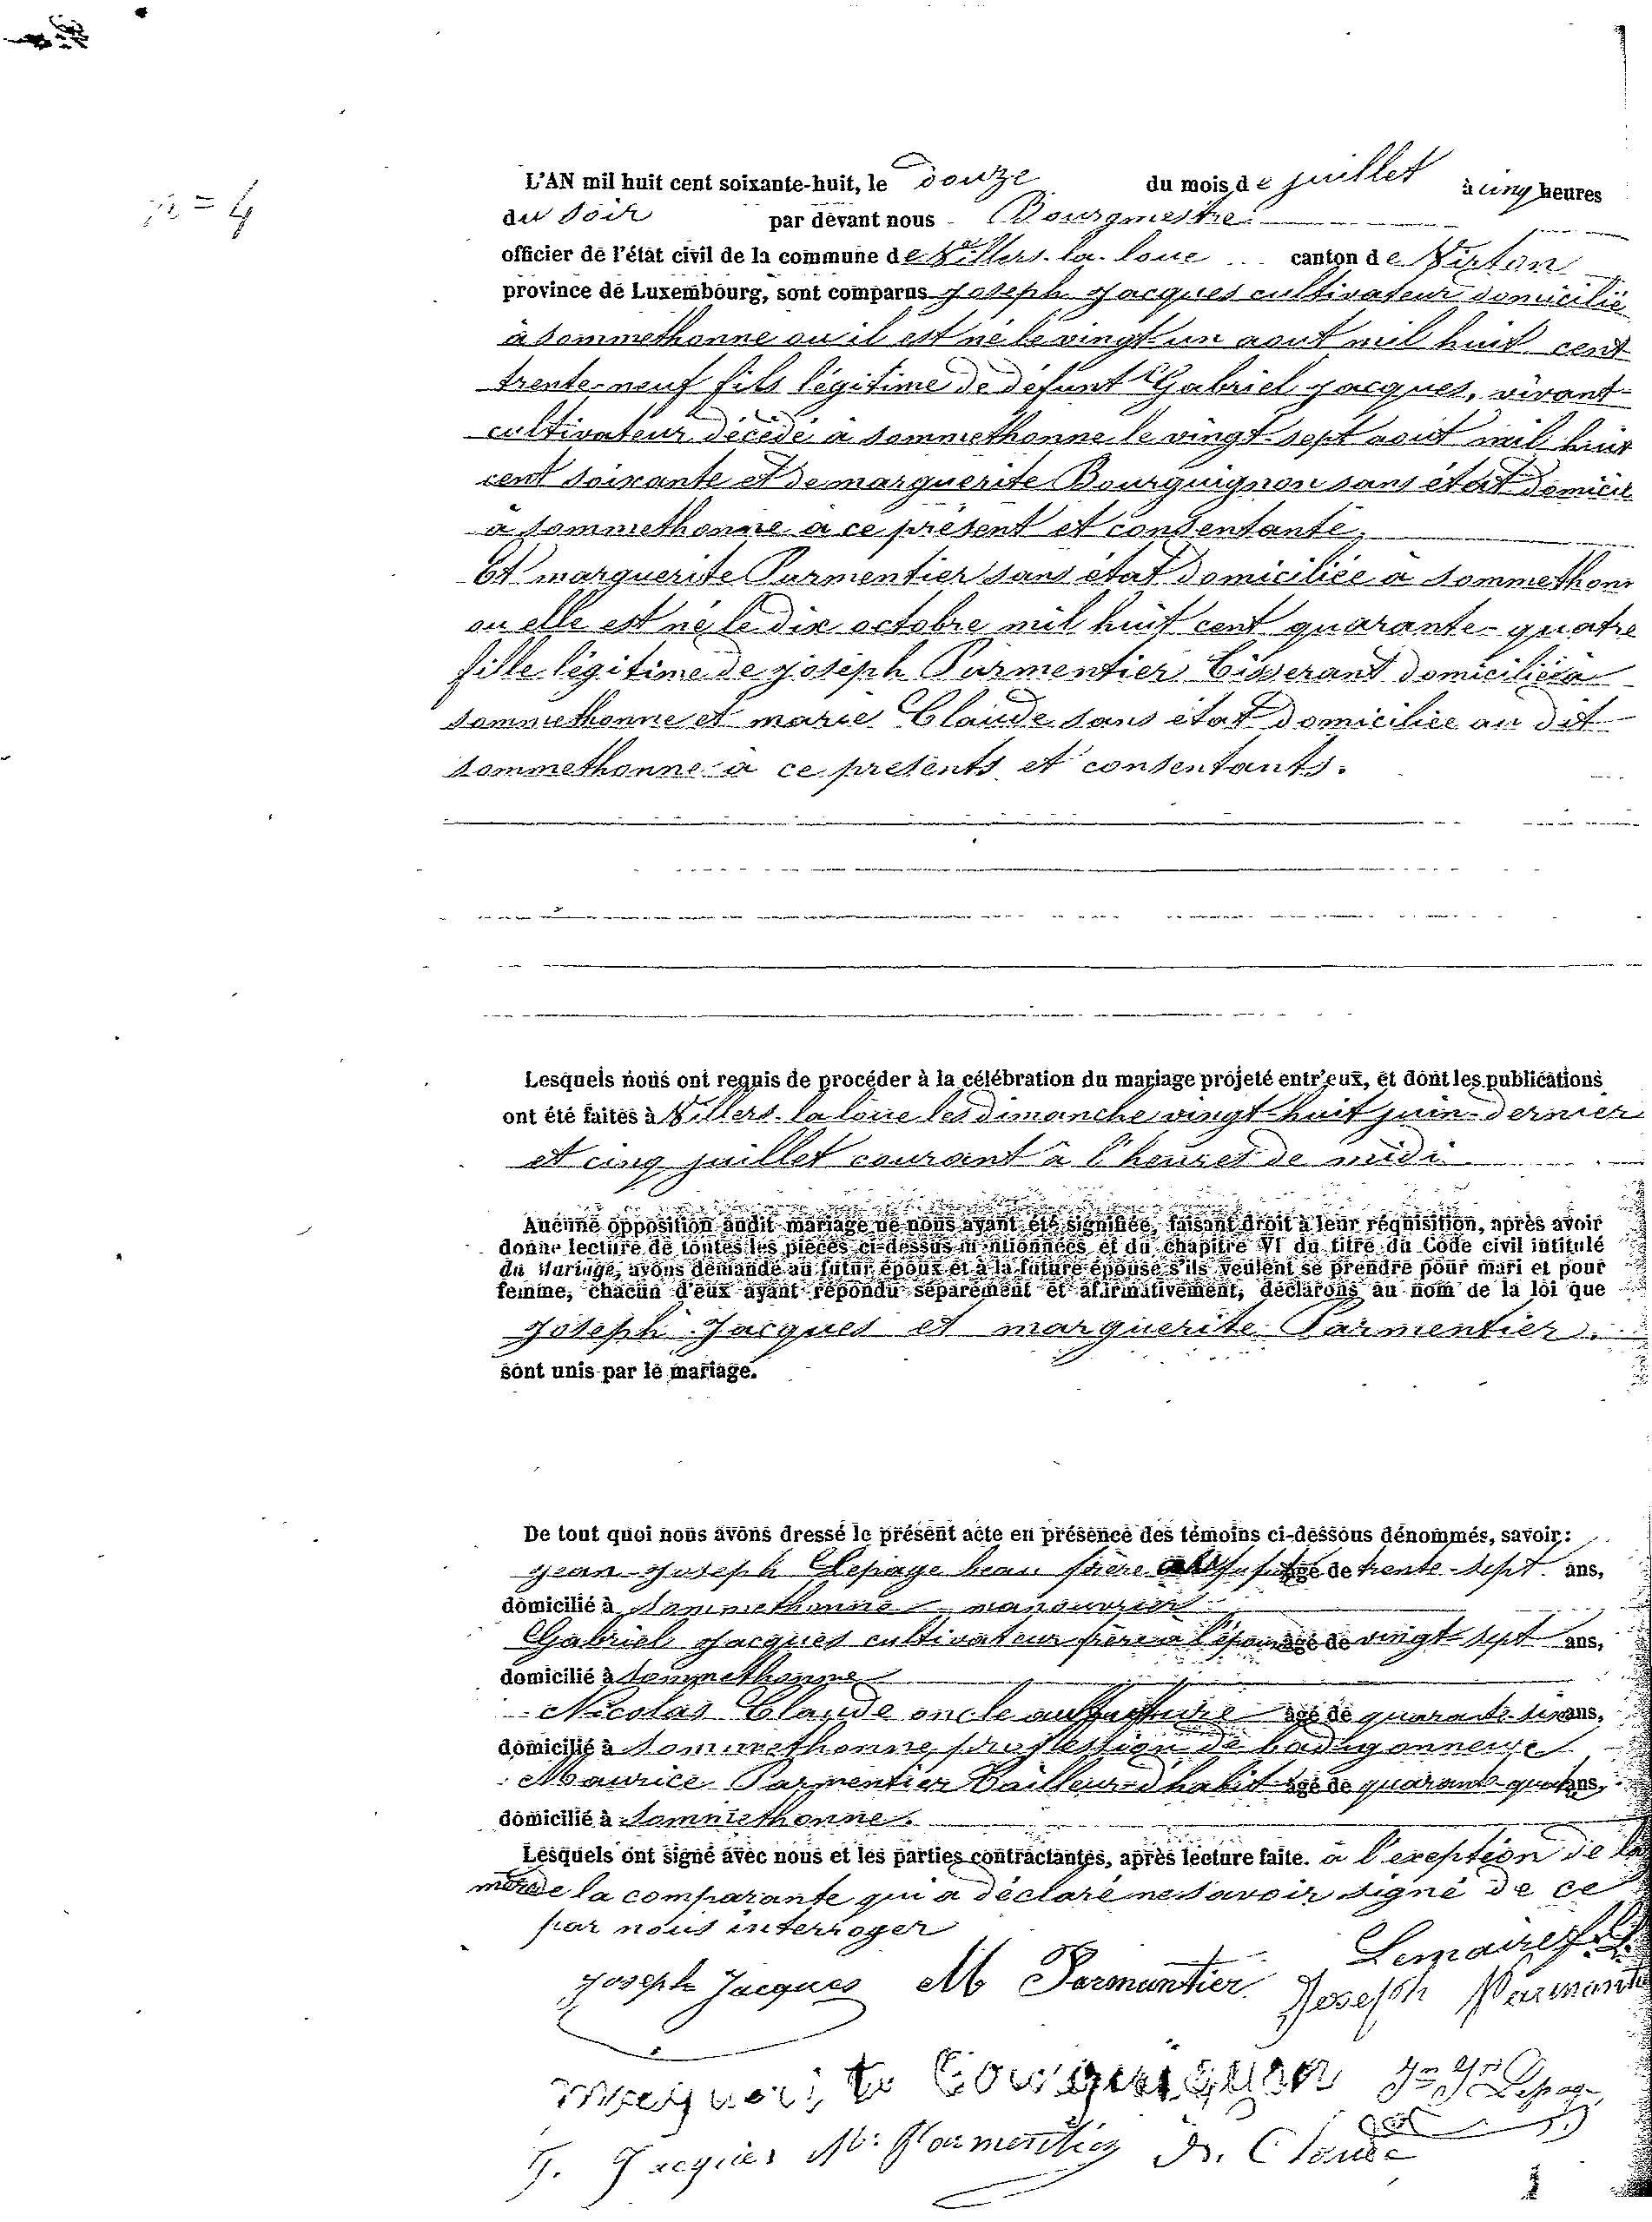 n = 4
L'AN mil huit cent soixante-huit, le douze du mois de juillet à cinq heures
du soir par devant nous Bourgmestre
officier de l'état civil de la commune de Villers-la-loue canton de Virton
province de Luxembourg, sont comparus Joseph Jacques cultivateur domicilié
à sommethonne ou il est né le vingt un aout mil huit cent
trente-neuf fils légitime de défunt Gabriel Jacques, vivant
cultivateur décédé à sommethonne le vingt-sept aout mil huit
cent soixante et de marguerite Bourguignon sans état domicil
à sommethonne à ce présent et consentante,
Et marguerite Parmentier sans état domiciliée à sommethonn
ou elle est né le dix octobre mil huit cent quarante-quatre
fille légitime de joseph Parmentier Tisserant domicilié à
sommethonne et marie Claude sans état domiciliée au dit
sommethonne à ce presents et consentants.
Lesquels nous ont requis de procéder à la célébration du mariage projeté entr'eux, et dont les publications
ont été faites à Villers-la-loue les dimanche vingt-huit juin dernier
et cinq juillet courant à l'heures de midi
Aucune opposition audit mariage ne nous ayant été signifiée, faisant droit à leur réquisition, après avoir
donné lecture de toutes les pièces ci-dessus mentionnées et du chapitre VI du titre du Code civil intitulé
du Mariage, avons demandé au futur époux et à la future épouse s'ils veulent se prendre pour mari et pour
femme, chacun d'eux ayant répondu séparément et affirmativement, déclarons au nom de la loi que
Joseph Jacques et marguerite Parmentier
sont unis par le mariage.
De tout quoi nous avons dressé le présent acte en présence des témoins ci-dessous dénommés, savoir:
jean-joseph Lepage beau frère âgé de trente-sept ans,
domicilié à sommethonne manouvrier
Gabriel Jacques cultivateur frère à l'époux âgé de vingt-sept ans,
domicilié à sommethonne
Nicolas Claude oncle âgé de quarante six ans,
domicilié à sommethonne, proffession de badigonneur
Maurice Parmentier Tailleur d'habit âgé de quarante-quatre ans,
domicilié à sommethonne.
Lesquels ont signé avec nous et les parties contractantes, après lecture faite. à l'exeption de la
mère de la comparante qui a déclaré ne savoir signé de ce
par nous interroger
Lemaire
Joseph Jacques M Parmantier Joseph Parmant
marguerite Bourguignon Jn Jh Lepage
G. Jacques M. Parmentier N. Claude